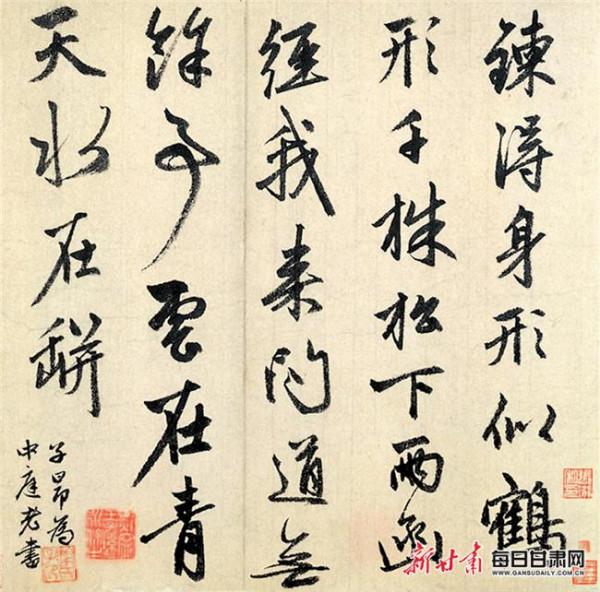 鍊得身形似鶴
形千株松下兩函
經我来問道無
餘事雲在青
天水在缾
子昂為
中庭老書
新甘肃
每日甘肃网
WWW.GANSUDAILY.COM.CN